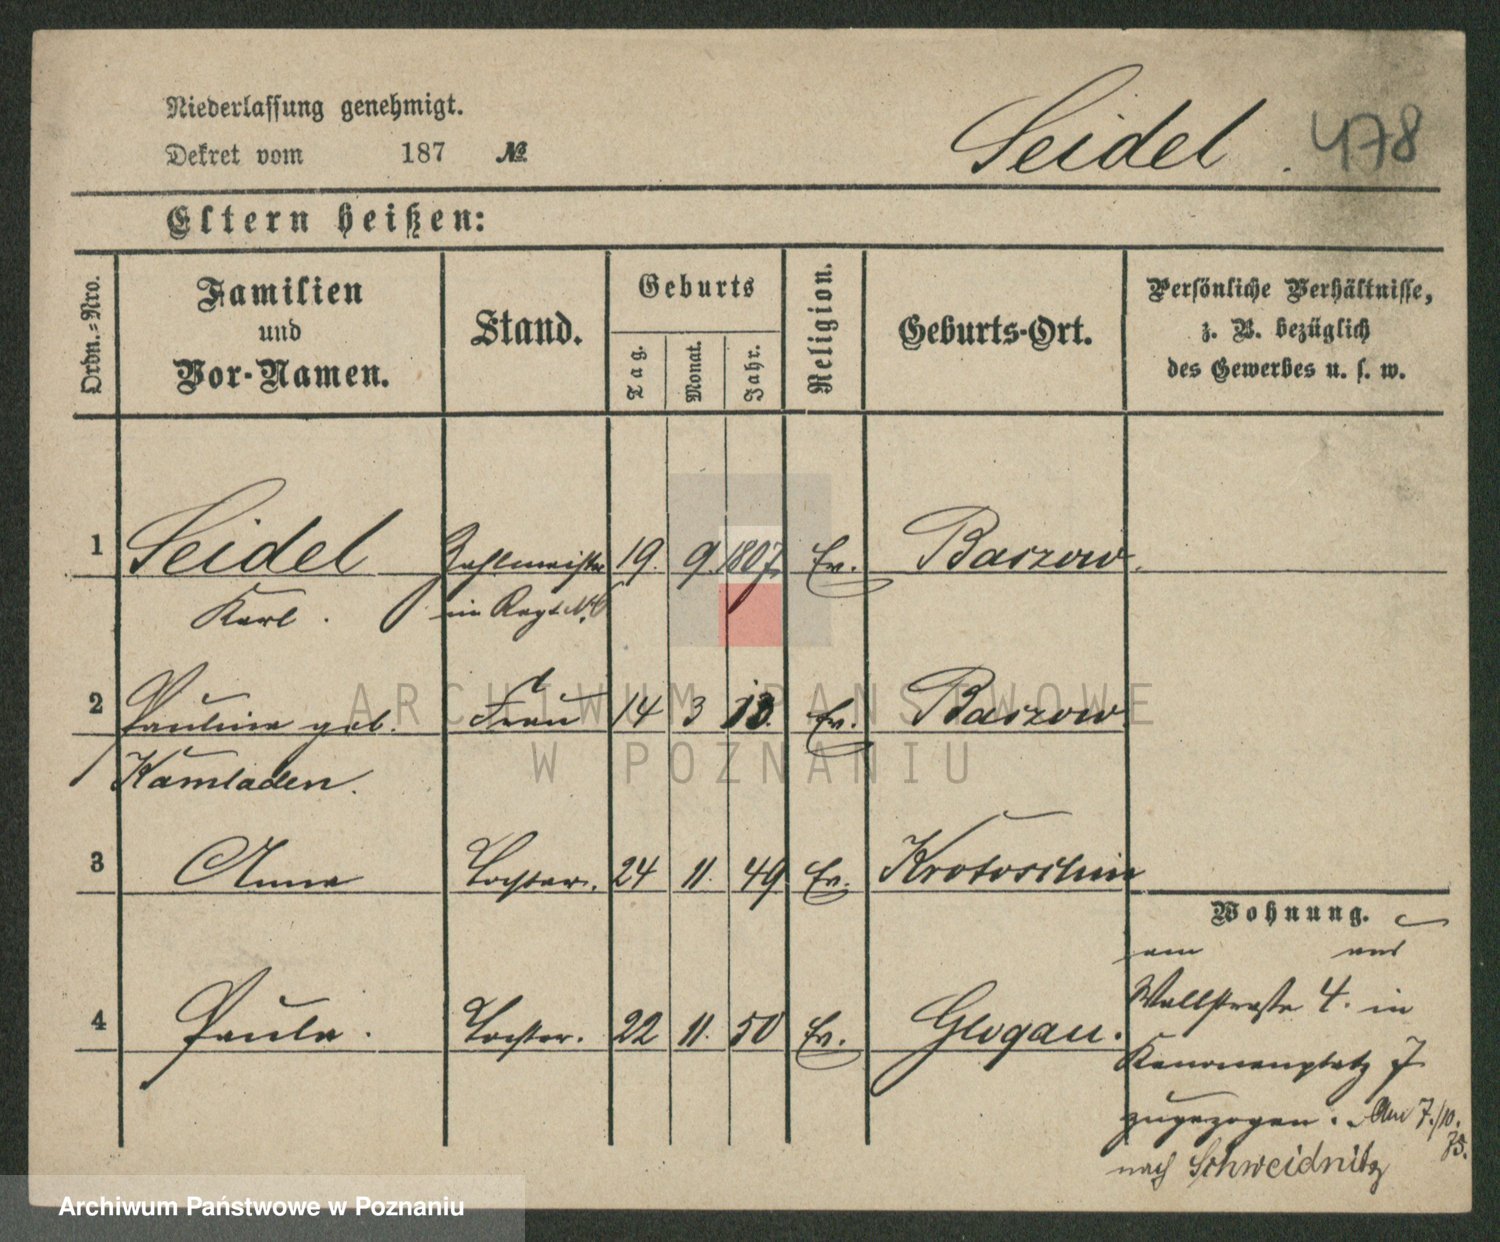 Niederlassung genehmigt.
Dekret vom 187 №
Seidel . 478
Eltern heißen:
Ordn.=Nro.
Familien
und
Vor-Namen.
Stand.
Geburts
Tag.
Monat.
Jahr.
Religion.
Geburts-Ort.
Persönliche Verhältnisse,
z. B. bezüglich
des Gewerbes u. s. w.
1 Seidel Zahlmeister 19. 9. 1807. Ev. Baszow.
Karl . im Regt. No 6
2 Pauline geb. Frau 14 3 13. Ev. Baszow
Kamladen.
3 Anna Tochter. 24 11. 49 Ev. Krotoschin
4 Paula. Tochter. 22 11. 50 Ev. Glogau.
Wohnung.
Wallstraße 4. in
Kanonenplatz 7
zugezogen. Am 7./10.
75.
nach Schweidnitz
ARCHIWUM PAŃSTWOWE
W POZNANIU
Archiwum Państwowe w Poznaniu